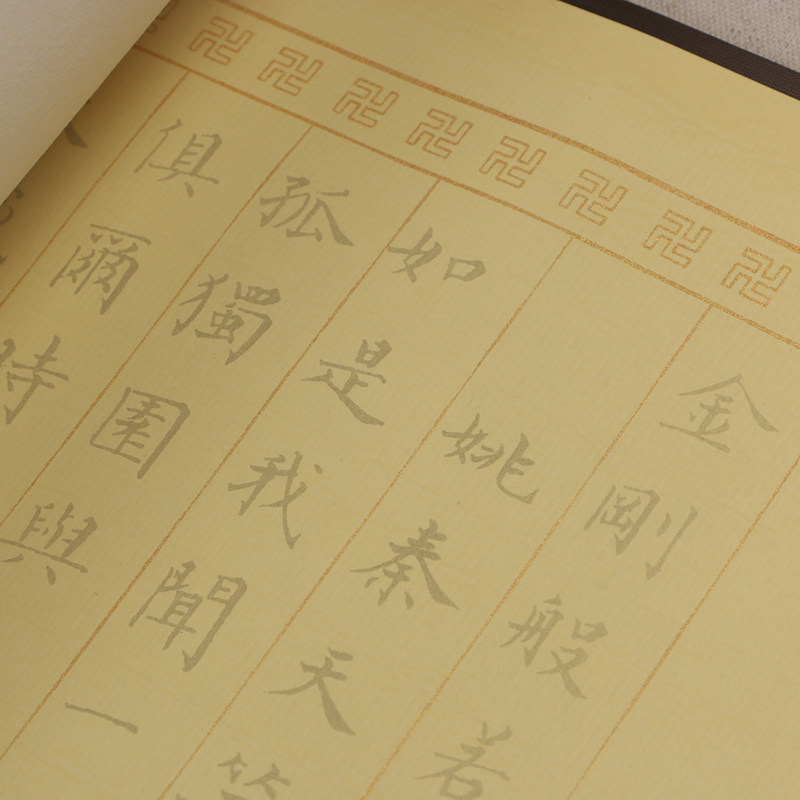 金剛般若
姚秦天
如是我聞一
孤獨園與
俱爾時